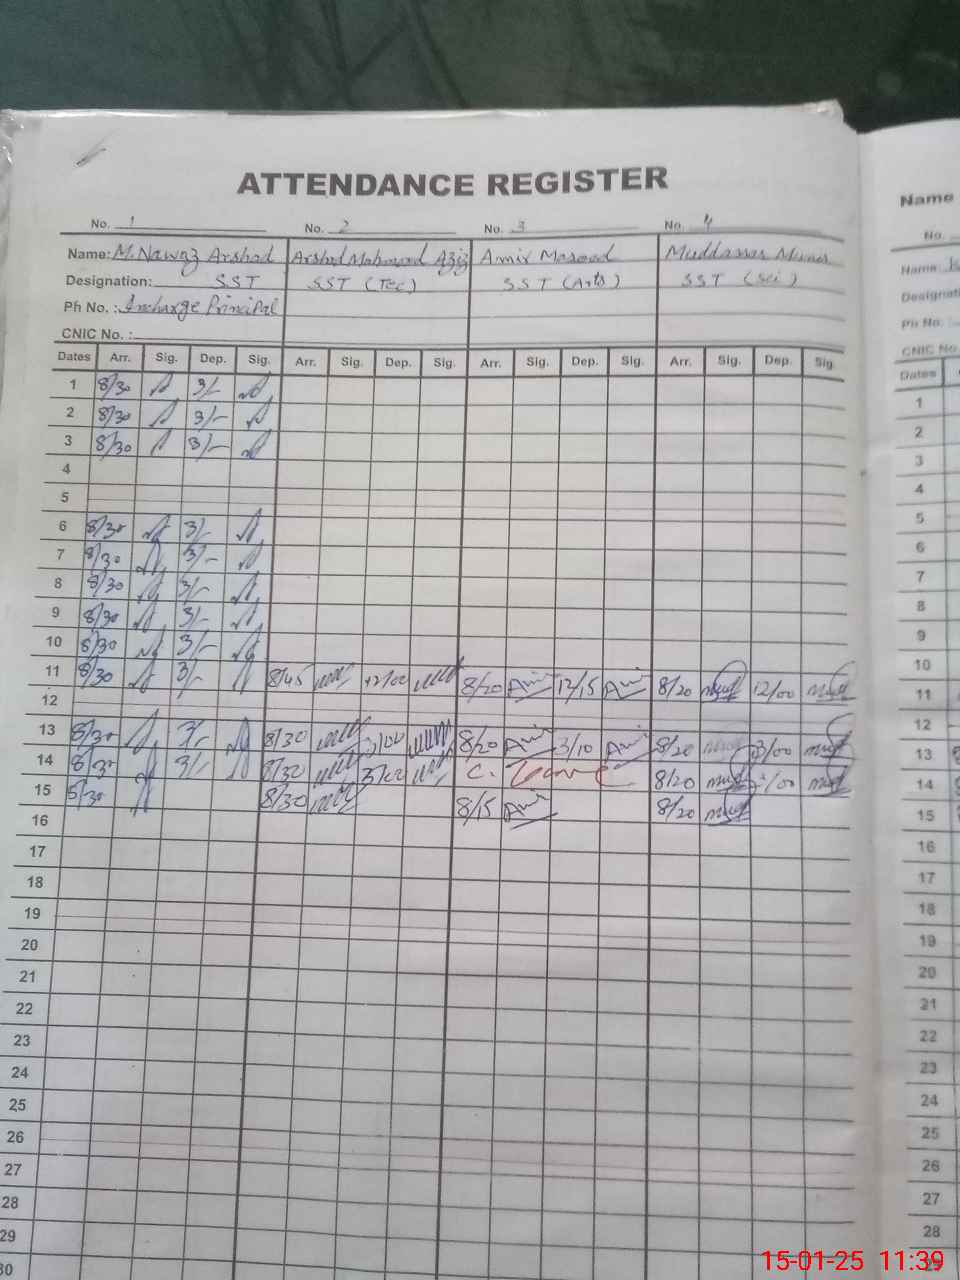 ATTENDANCE REGISTER
No. 1 No. 2 No. 3 No. 4
Name: M. Nawaz Arshad Arshad Mahmood Aziz Amir Masood Muddassar
Designation: SST SST (Tec) SST (Arts) SST (Sci)
Ph No. : Incharge Principal
CNIC No. :
Dates Arr. Sig. Dep. Sig. Arr. Sig. Dep. Sig. Arr. Sig. Dep. Sig. Arr. Sig. Dep. Sig.
1 8/30 3/-
2 8/30 3/-
3 8/30 3/-
4
5
6 8/30 3/-
7 8/30 3/-
8 8/30 3/-
9 8/30 3/-
10 8/30 3/-
11 8/30 3/- 8/45 12/00 8/20 Amir 12/15 Amir 8/20 12/00
12
13 8/30 3/- 8/30 3/00 8/20 Amir 3/10 Amir 8/20 3/00
14 8/30 3/- 8/30 3/00 C. Leave 8/20
15 8/30 8/30 8/15 Amir 8/20
16
17
18
19
20
21
22
23
24
25
26
27
28
29
30
Name
No.
Name
Designati
Ph No.
CNIC No
Dates
1
2
3
4
5
6
7
8
9
10
11
12
13
14
15
16
17
18
19
20
21
22
23
24
25
26
27
28
29
15-01-25 11:39